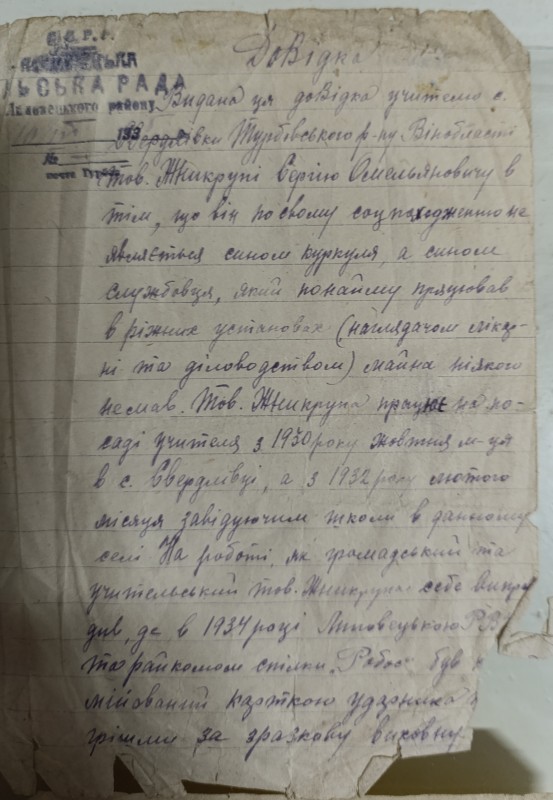 У.С.Р.Р.
ЛЬСЬКА РАДА
Липовецького району
193
№
почта Турбів
Довідка
Видана ця довідка учителю с.
Свердлівки Турбівського р-ну Вінобласті
тов. Жникрупі Сергію Омельяновичу в
тім, що він по свому соцпоходженню не
являється сином куркуля, а сином
службовця, який по найму працював
в ріжних установах (наглядачом лікар-
ні та діловодством) майна ніякого
не мав. Тов. Жникрупа працює на по-
саді учителя з 1930 року жовтня м-ця
в с. Свердлівці, а з 1932 року лютого
місяця завідуючим школи в данному
селі. На роботі, як громадський та
учительський тов. Жникрупа себе випра
див, де в 1934 році Липовецькою Р.В.
та райкомом спілки "Робос" був
мійований карткою ударника
грішми за зразкову виховну